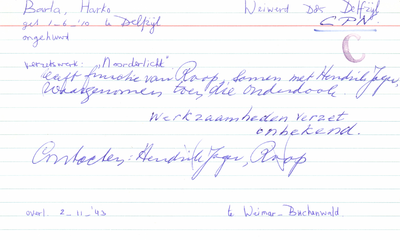 Barla, Harko Weiwerd D88 Delfzijl
geb 1-6-'10 te Delfzijl C.P.N.
ongehuwd C
verzetswerk: "Noorderlicht"
heeft functie van Roop, samen met Hendrik Jager,
waargenomen toen die onderdook.
Werkzaamheden verzet
onbekend.
Contacten: Hendrik Jager, Roop
overl. 2-11-'43 te Weimar-Buchenwald